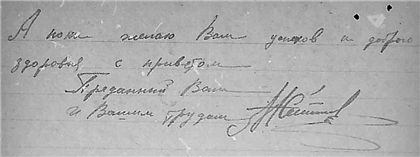 А пока желаю Вам успехов и доброго
здоровья с приветом
Преданный Вам
и Вашим трудам